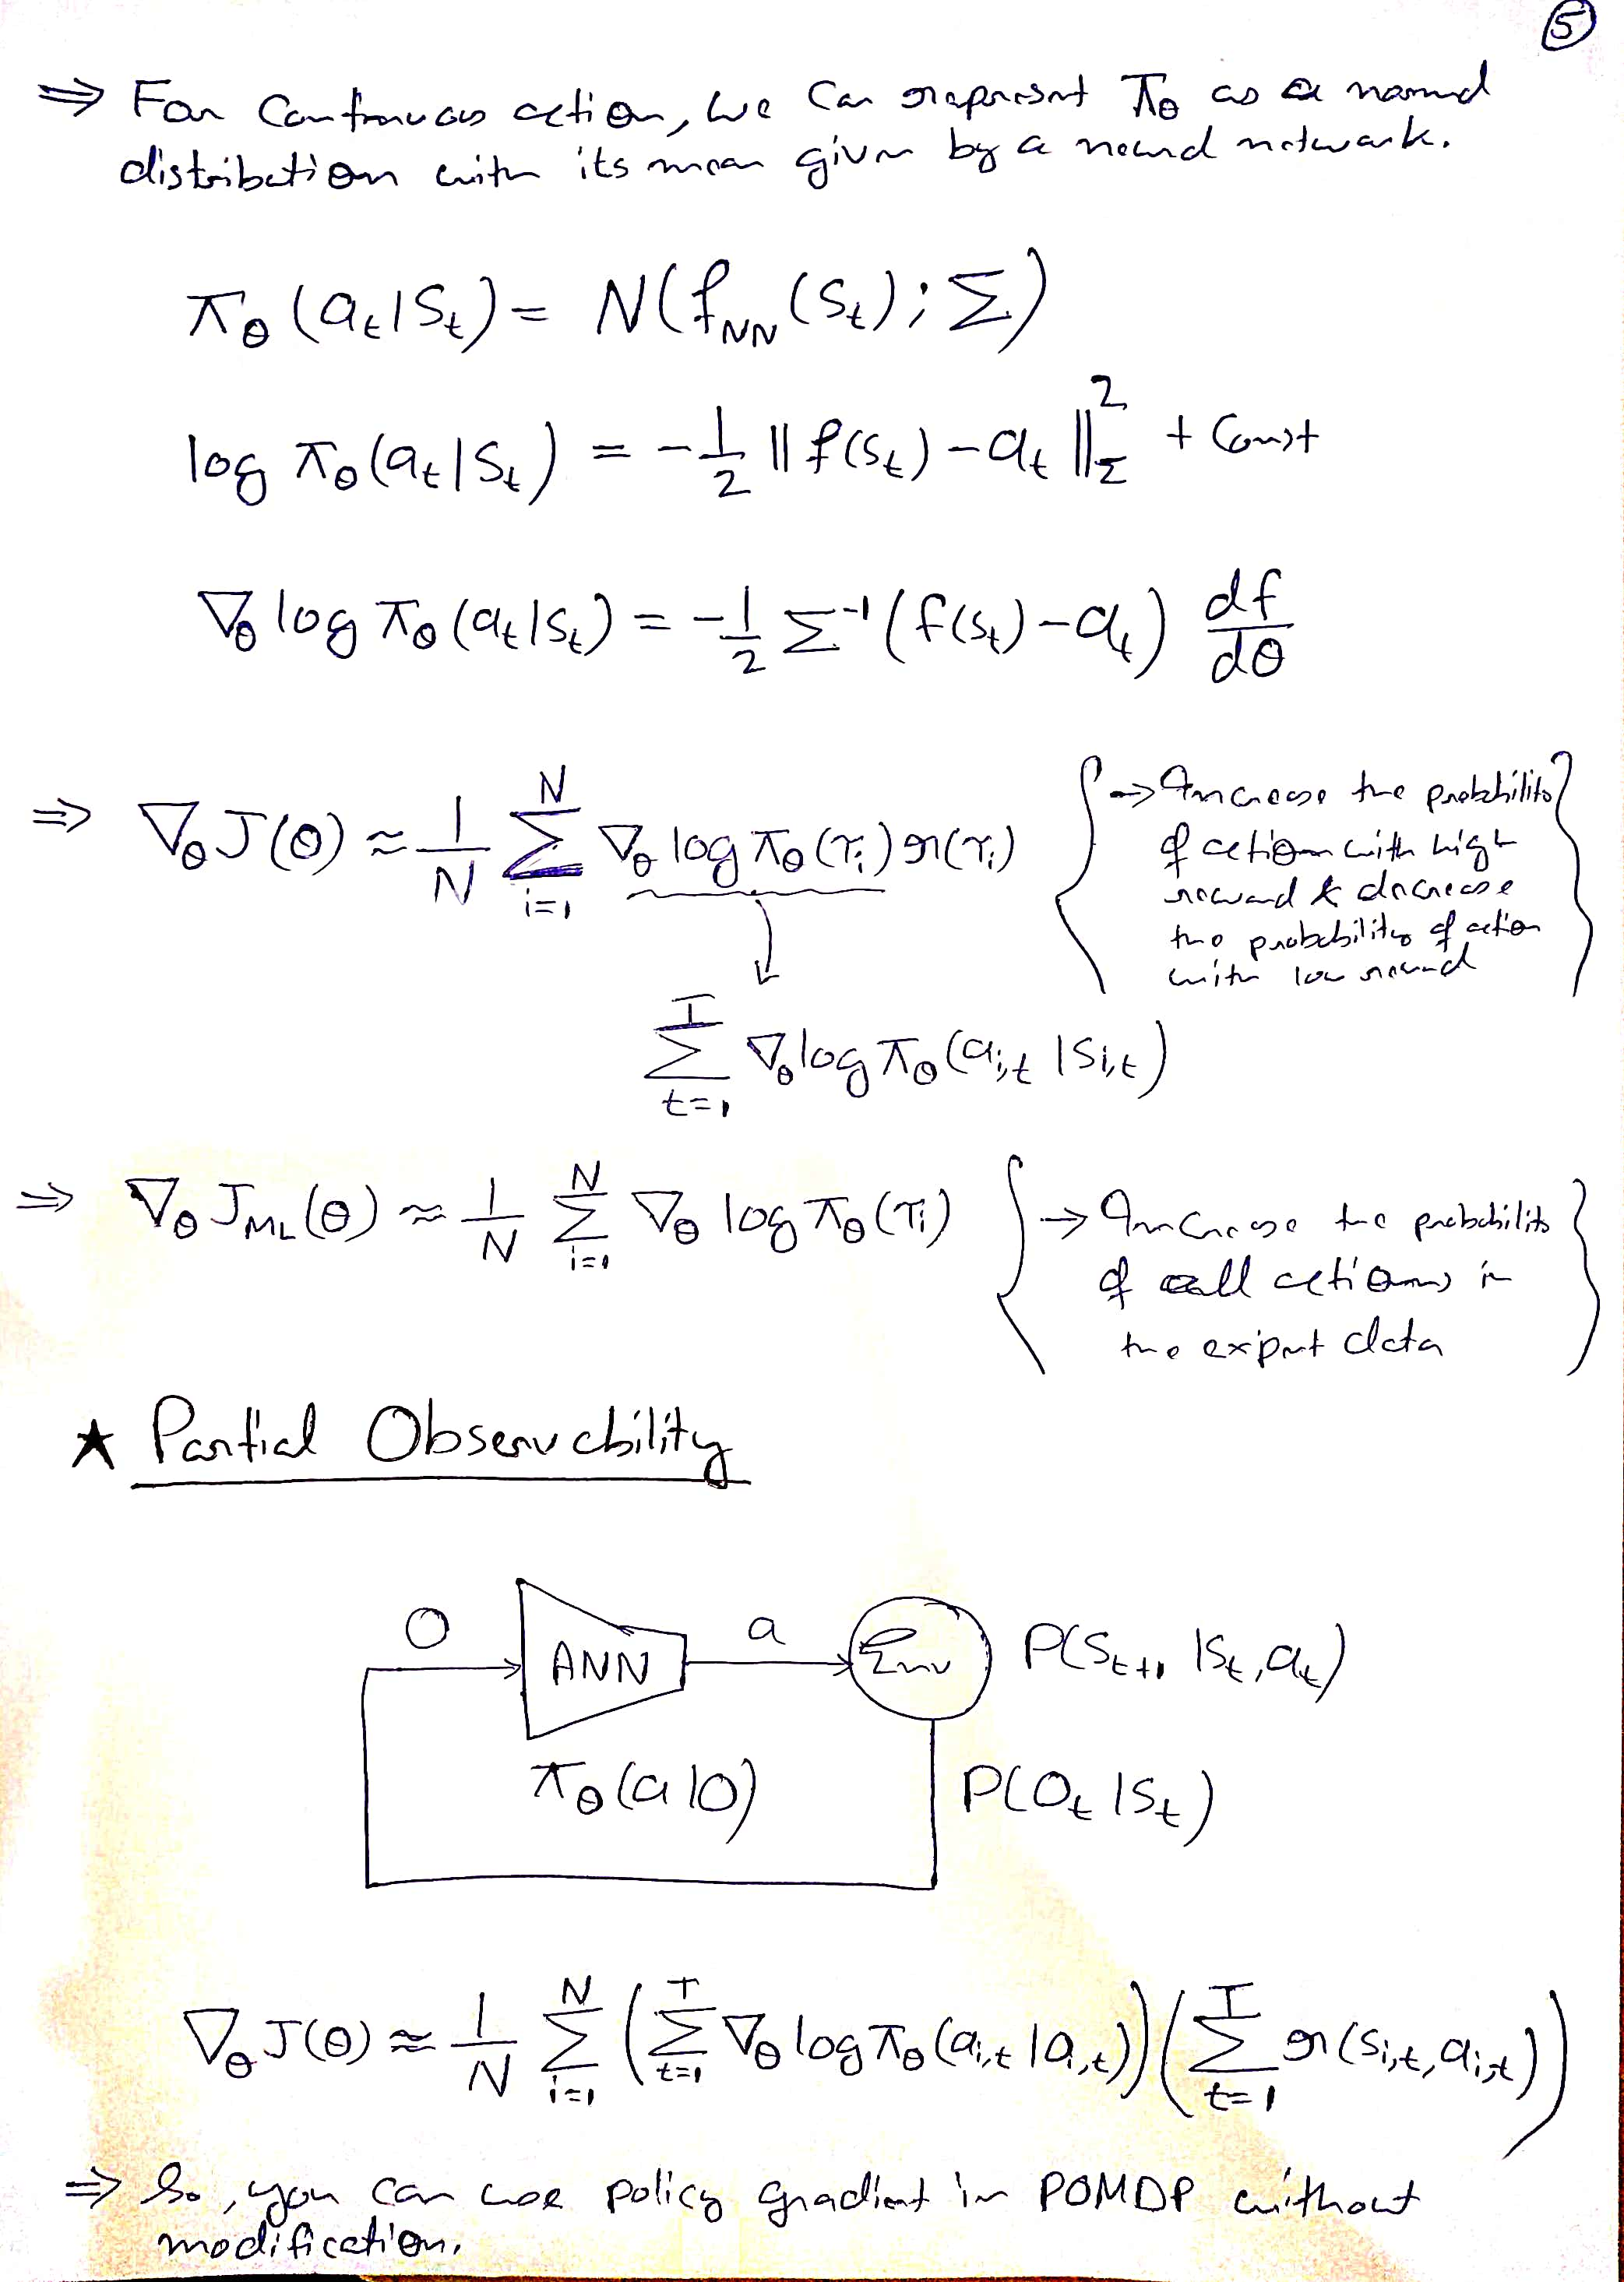 ⑤
⇒ For Continuous action, we can represent π_θ as a normal
distribution with its mean given by a neural network.
π_θ(a_t|S_t) = N(f_NN(S_t); Σ)
log π_θ(a_t|S_t) = -1/2 ‖f(S_t) - a_t‖²_Σ + Const
∇_θ log π_θ(a_t|S_t) = -1/2 Σ⁻¹(f(S_t) - a_t) df/dθ
⇒ ∇_θ J(θ) ≈ 1/N Σ_{i=1}^{N} ∇_θ log π_θ(τ_i) r(τ_i)
{→ Increase the probability
of action with high
reward & decrease
the probability of action
with low reward}
Σ_{t=1}^{T} ∇_θ log π_θ(a_{i,t}|S_{i,t})
⇒ ∇_θ J_ML(θ) ≈ 1/N Σ_{i=1}^{N} ∇_θ log π_θ(τ_i)
{→ Increase the probability
of all actions in
the expert data}
★ Partial Observability
O ANN a Env P(S_{t+1}|S_t, a_t)
π_θ(a|O) P(O_t|S_t)
∇_θ J(θ) ≈ 1/N Σ_{i=1}^{N} (Σ_{t=1}^{T} ∇_θ log π_θ(a_{i,t}|O_{i,t})) (Σ_{t=1}^{T} r(S_{i,t}, a_{i,t}))
⇒ So, you can use policy gradient in POMDP without
modification.